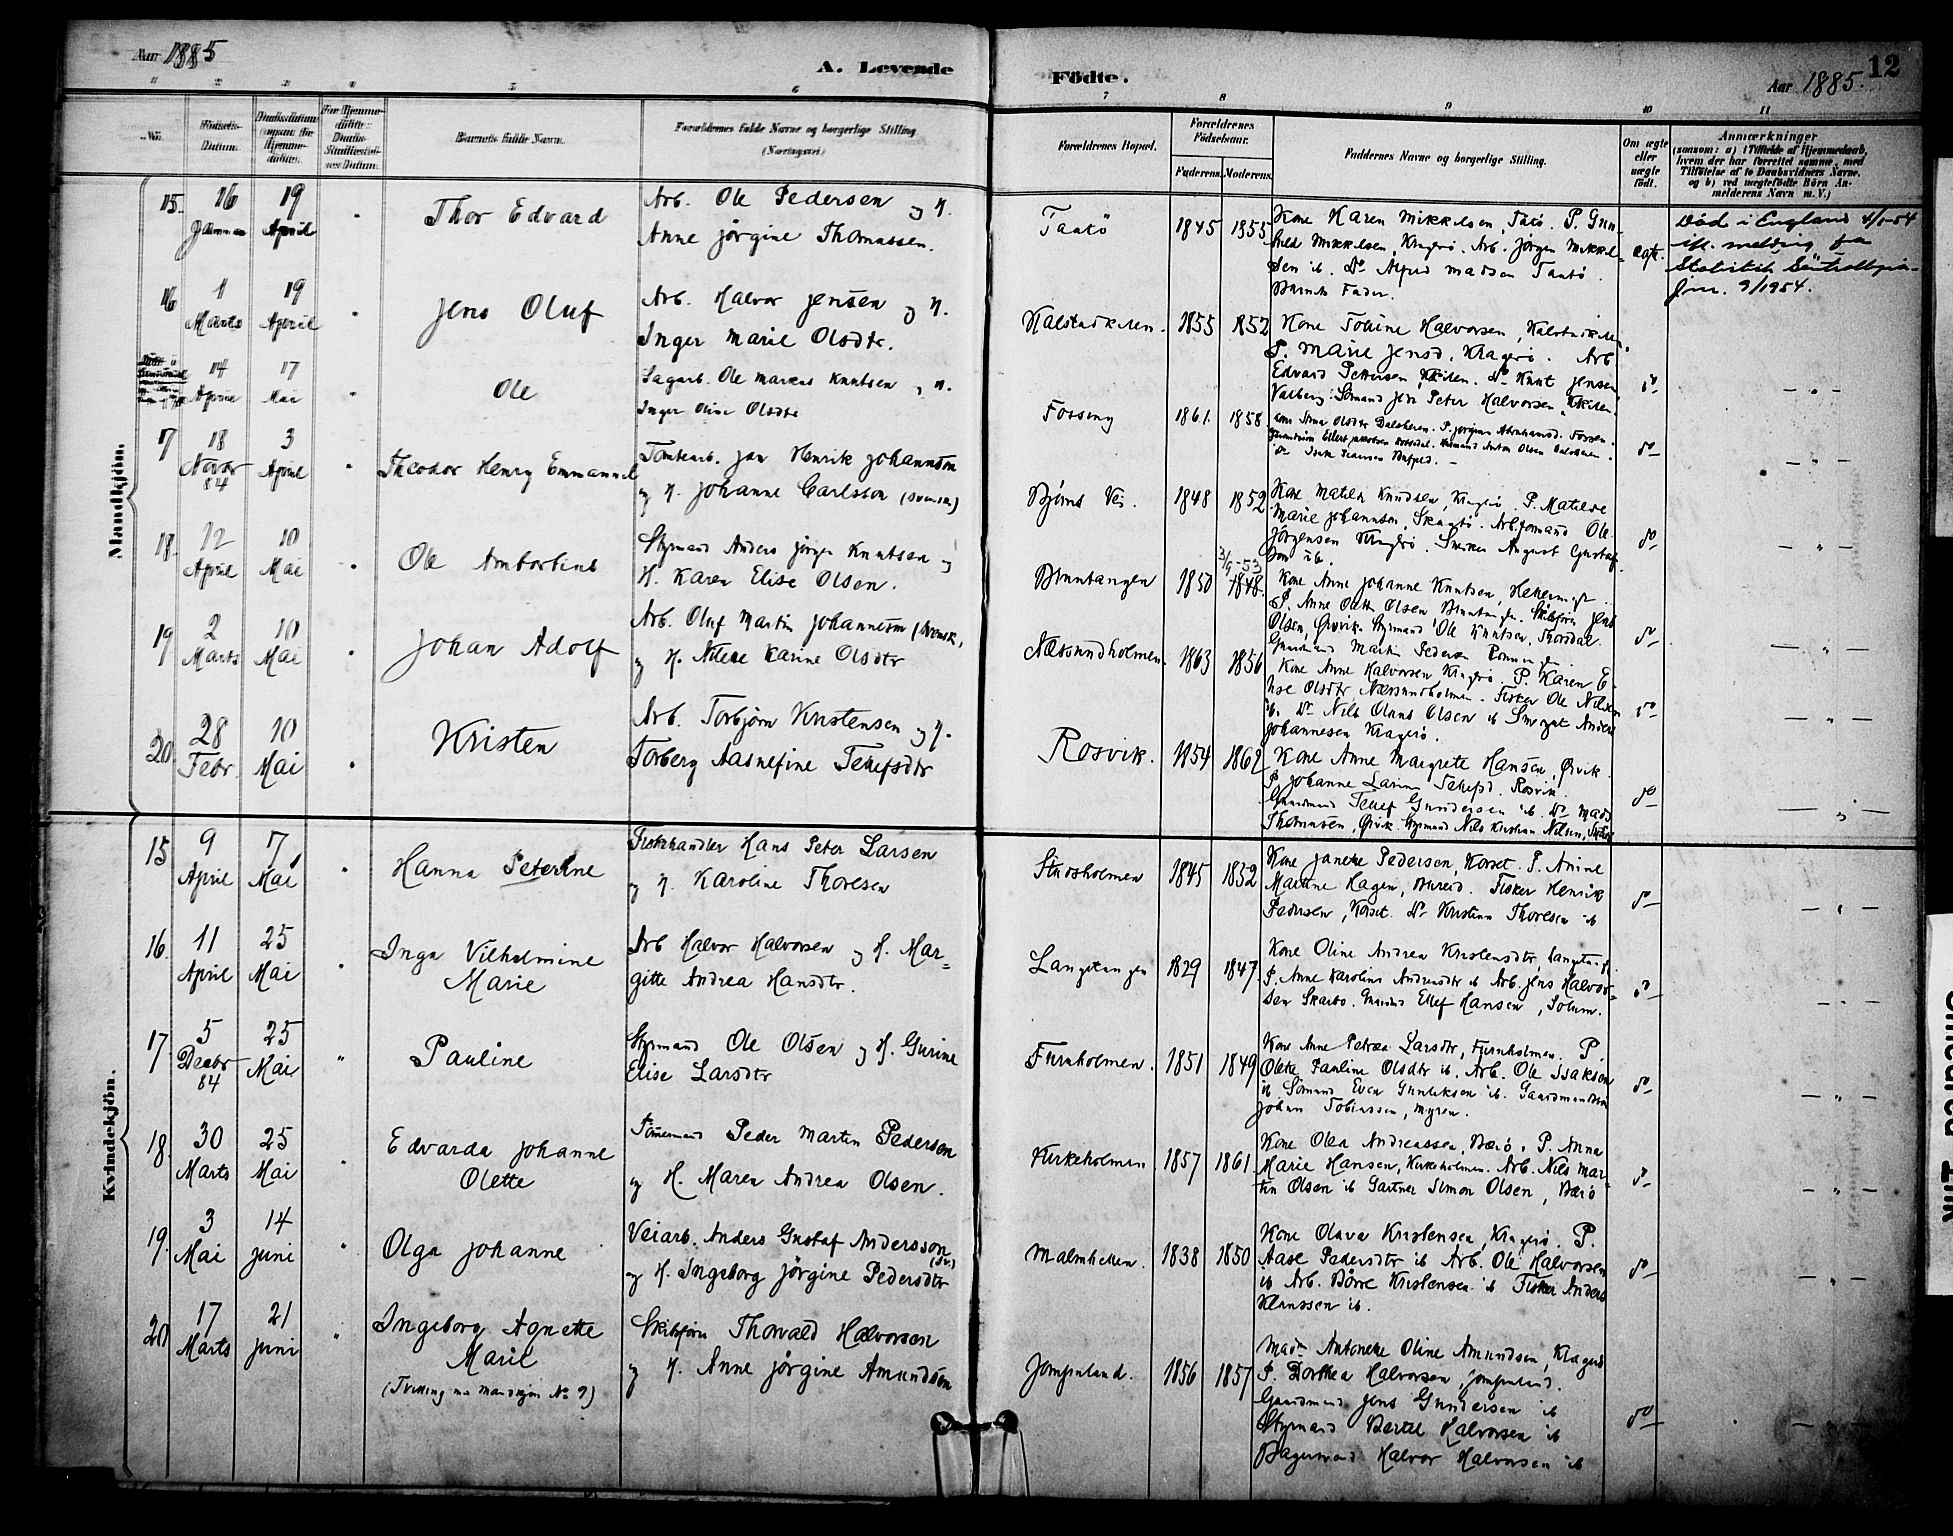 Aar 1885
A. Levende
Födte.
12
Aar 1885.
2 3 4 5 6 7 8 9 10 11
No.
Födsels-Datum.
Daabsdatum
Barnets fulde Navn.
Forældrenes fulde Navne og borgerlige Stilling.
(Næringsvei)
Forældrenes Bopæl.
Forældrenes Födselsaar.
Faderens. Moderens.
Faddernes Navne og borgerlige Stilling.
Om ægte eller uægte födt.
Anmærkninger
(saasom: a) i Tilfælde af Hjemmedaab, hvem der har forrettet samme, med Tilföielse af to Daabsvidners Navne. og b) ved uægtefödte Börn Anmelderens Navn m. V.)
Mandkjön.
15. 16 Januar 19 April "
Thor Edvard
Arb. Ole Pedersen og H.
Anne Jörgine Thomassen.
Taatö 1845 1855
Kone Karen Mikkelsen, Tatö. P. Gun-
hild Mikkelsen, Kragerö. Arb. Jörgen Mikkel-
sen ib. Do Alfred Madsen Taatö.
Barnets Fader.
ægte.
Död i England 4/1-54
ifl. melding fra
Statistisk Sentralbyrå
Jnr. 9/1954.
16 1 Marts 19 April "
Jens Oluf
Arb. Halvor Jensen og H.
Inger Marie Olsdtr.
Kalstadkilen. 1855 1852
Kone Tomine Halvorsen, Kalstadkilen.
P. Marie Jensd, Kragerö. Arb
Edvard Pettersen, Kkilen. Do Knut Jensen
Valberg. Sömand Jens Peter Halvorsen, Kkilen.
do — " —
14 April 17 Mai "
Ole
Sagarb. Ole Markus Knutsen og H.
Inger Oline Olsdtr
Fossing 1861. 1858
Olsdtr Dalsheien. P. Jörgine Abrahamsd. Fossen.
do — " —
7 18 Novbr 84 3 April "
Theodor Henry Emmanuel
Tomtearb. Jan Henrik Johannson
og H. Johanne Carlsson (svensk)
Björns Vei. 1848 1852
Kone Matilda Knudsen, Kragerö. P. Matilde
Marie Johannson, Skaatö. Arbformand Ole
Jörgensen Kragerö. Snekker August Gustaf-
son ib.
do — " —
18. 12 April 10 Mai "
Ole Ambortius
Styrmand Anders Jörgen Knutsen og
H. Karen Elise Olsen.
Bruntangen 1850 3/9-53 1848.
Kone Anne Johanne Knutsen,
P. Anne Olette Olsen Skibsförer Jens
Olsen, Örvik. Styrmand Ole Knutsen, Thorsdal.
Gaardmand Martin Pedersen
do — " —
19 2 Marts 10 Mai "
Johan Adolf
Arb. Oluf Martin Johannesen (svensk)
og H. Nilene Karine Olsdtr
Næsundholmen. 1863 1856
Kone Anne Halvorsen, Kragerö. P. Karen E-
lise Olsdtr, Næsundholmen. Fisker Ole Nilsen
ib. Do Nils Olaus Olsen ib Anders
Johannesen Kragerö.
do — " —
20 28 Febr. 10 Mai "
Kristen
Arb. Torbjörn Kristensen og H.
Torberg Aasnefine Tellefsdtr
Rosvik. 1854 1862
Kone Anne Margrete Hansen, Örvik.
P. Johanne Tellefsd. Rosvik.
Gaardmand Tellef Gundersen ib. Do Mads
Thomassen, Örvik. Styrmand Nils Kristian Nilsen,
do — " —
Kvindekjön.
15 9 April 7 Mai "
Hanna Peterine
Fiskehandler Hans Peter Larsen
og H. Karoline Thoresen
Stuosholmen 1845 1852
Kone Janeke Pedersen, Korset. P. Anine
Martine Hagen, Fisker Henrik
Pedersen, Korset. Do Kristian Thoresen ib
do — " —
16. 11 April 25 Mai "
Inga Vilhelmine
Marie
Arb Halvor Halvorsen og H. Mar-
gitte Andrea Hansdtr.
Langetangen 1829 1847
Kone Oline Andrea Kristensdtr Langetang.
P. Anne Karoline Andreasdtr ib Arb. Jens Halvor-
sen Skarbo. Ellef Hansen, Solum.
do — " —
17. 5 Decbr 84 25 Mai "
Pauline
Styrmand Ole Olsen og H. Gurine
Elise Larsdtr
Furuholmen. 1851 1849
Kone Anne Petrea Larsdtr, Furuholmen. P.
Olette Pauline Olsdtr ib. Arb. Ole Isaksen
ib Sömand Even Gunleksen ib. Gaardmandssön
Johan Tobiassen, Myren.
do — " —
18. 30 Marts 25 Mai "
Edvarda Johanne
Olette
Tömmermand Peder Martin Pederson
og H. Maren Andrea Olsen.
Kirkeholmen 1857 1861
Kone Olea Andreassen, Bærö. P. Anna
Marie Hansen, Kirkeholmen. Arb. Nils Mar-
tin Olsen ib Gartner Simon Olsen, Bærö
do — " —
19. 3 Mai 14 Juni "
Olga Johanne
Veiarb. Anders Gustaf Andersson
(Sv.)
og H. Ingeborg Jörgine Pedersdtr
Malmhellen. 1838 1850
Kone Olava Kristensen, Kragerö. P.
Aase Pedersdtr ib Arb. Ole Halvorsen
ib Arb. Börre Kristensen ib Fisker Anders
Klaussen ib.
do — " —
20 17 Marts 21 Juni "
Ingeborg Agnette
Marie
(Tvilling m. Mandkjön No 9)
Skibsförer Thorvald Halvorsen
og H. Anne Jörgine Amundsen
Jomfruland. 1856 1857
Mad. Antonette Oline Amundsen, Kragerö
P. Dorthea Halvorsen, Jomfruland.
Gaardmand Jens Gundersen ib
Styrmand Bertel Halvorsen ib
Halvor Halvorsen ib
do — " —